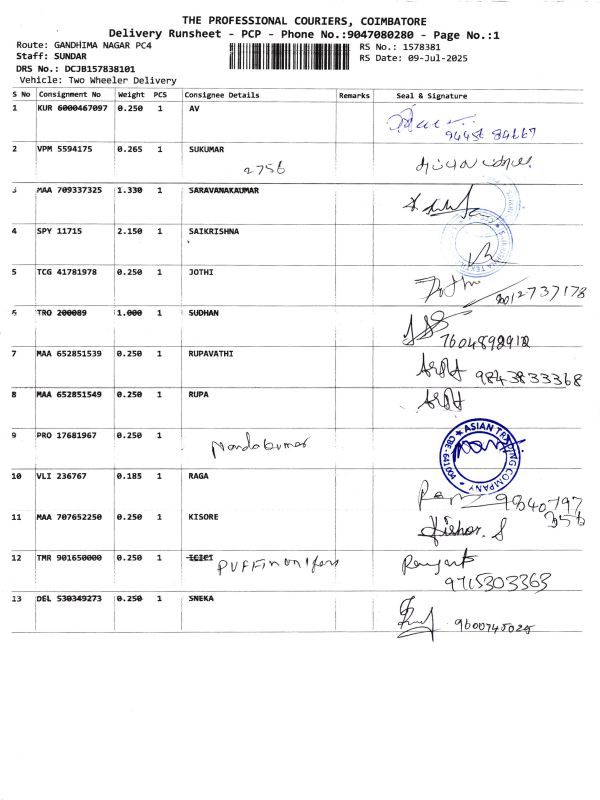 THE PROFESSIONAL COURIERS, COIMBATORE
Delivery Runsheet - PCP - Phone No.:9047080280 - Page No.:1
Route: GANDHIMA NAGAR PC4 RS No.: 1578381
Staff: SUNDAR RS Date: 09-Jul-2025
DRS No.: DCJB157838101
Vehicle: Two Wheeler Delivery
S No Consignment No Weight PCS Consignee Details Remarks Seal & Signature
1 KUR 6000467097 0.250 1 AV
94456 84667
2 VPM 5594175 0.265 1 SUKUMAR
2756
3 MAA 709337325 1.330 1 SARAVANAKAUMAR
4 SPY 11715 2.150 1 SAIKRISHNA
5 TCG 41781978 0.250 1 JOTHI
Jothi
9012737178
6 TRO 200089 1.000 1 SUDHAN
7604892912
7 MAA 652851539 0.250 1 RUPAVATHI
9843833368
8 MAA 652851549 0.250 1 RUPA
9 PRO 17681967 0.250 1 Nandakumar
ASIAN TRADING COMPANY
10 VLI 236767 0.185 1 RAGA
9840797
356
11 MAA 707652250 0.250 1 KISORE Kishor. S
12 TMR 901650000 0.250 1 PUFFin unifers
9715303363
13 DEL 530349273 0.250 1 SNEKA
9600745025